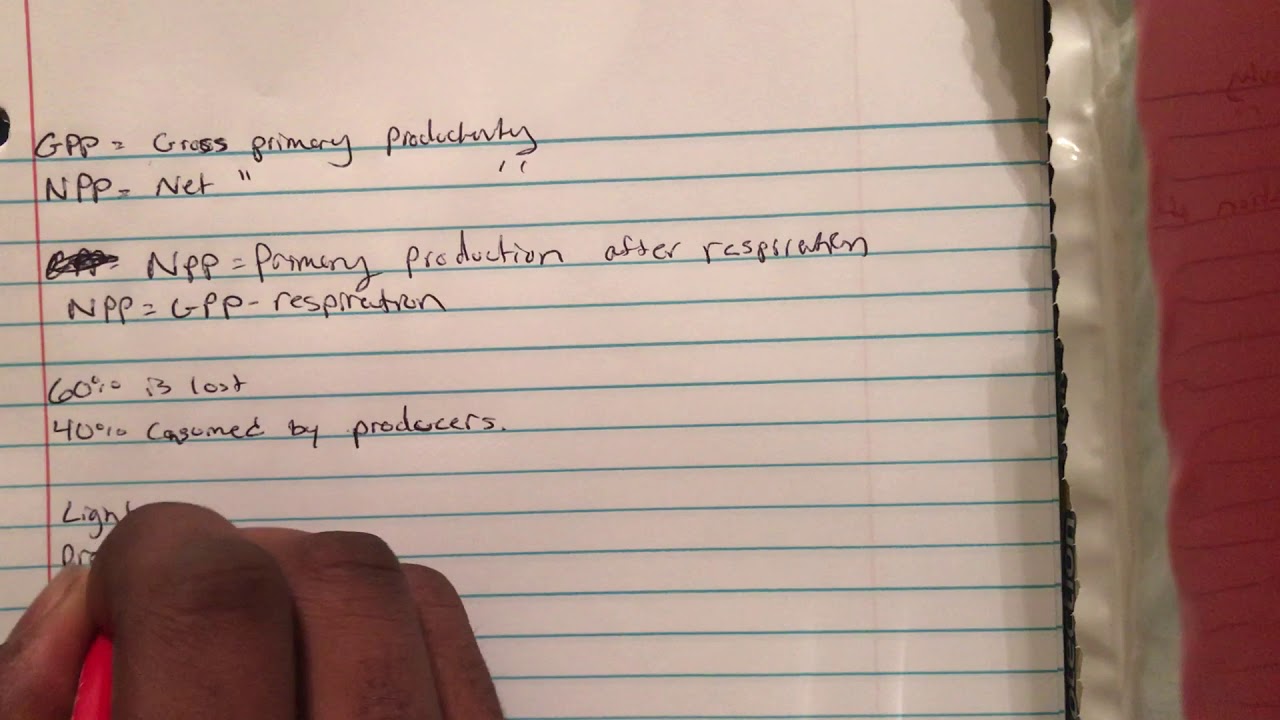 GPP = Gross primary productivity
NPP = Net " "
NPP = Primary production after respiration
NPP = GPP - respiration
60% is lost
40% cosumed by producers.
Light
pro